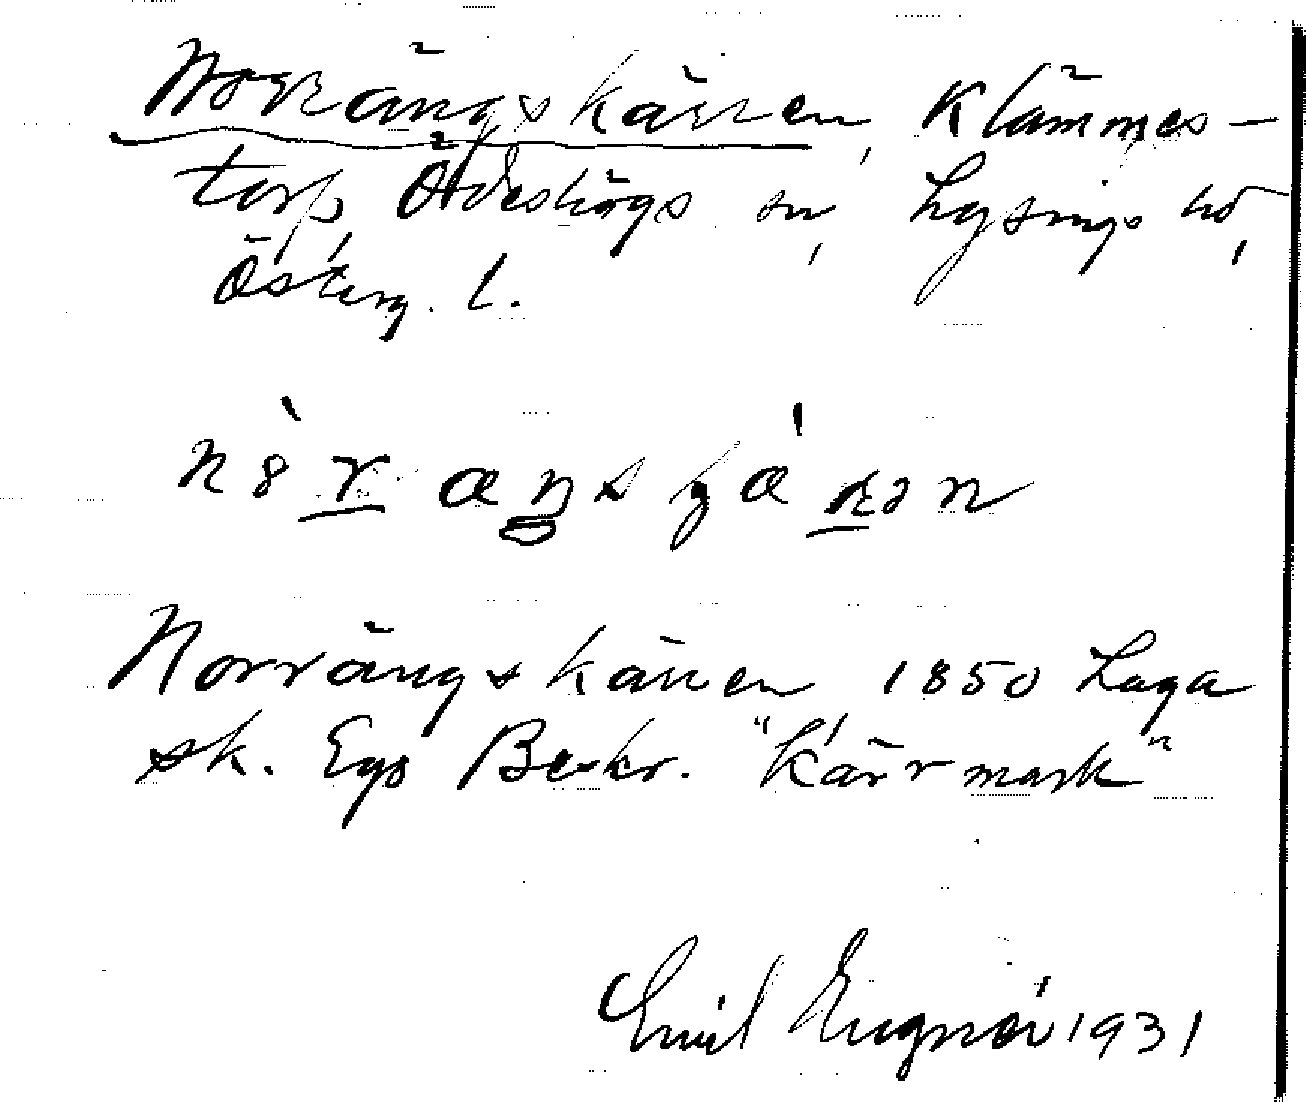 Norrängskärren, Klämmes-
torp, Ödeshögs sn, Lysings hd,
Österg. l.
Norrängskärren 1850 Laga
sk. Ego Beskr. "Kärrmark"
Emil 1931